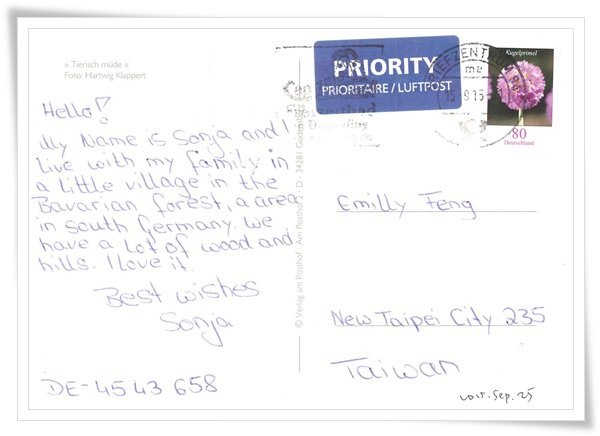 » Tierisch müde «
Foto: Hartwig Klappert
Hello!
My Name is Sonja and I
live with my family in
a little village in the
Bavarian forest, a area
in south Germany. We
have a lot of wood and
hills. I love it.
Best wishes
Sonja
DE-4543 658
© Verlag am Posthof Am Posthof D - 24281
PRIORITY
PRIORITAIRE / LUFTPOST
BRIEFZENTRUM
Kugelprimel
80
Deutschland
Emilly Feng
New Taipei City 235
Taiwan
2015. Sep. 25